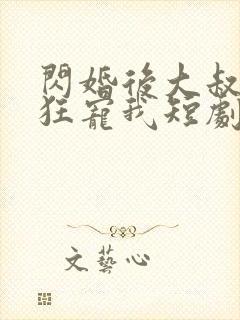 閃婚後大叔
狂寵我短劇
文藝心